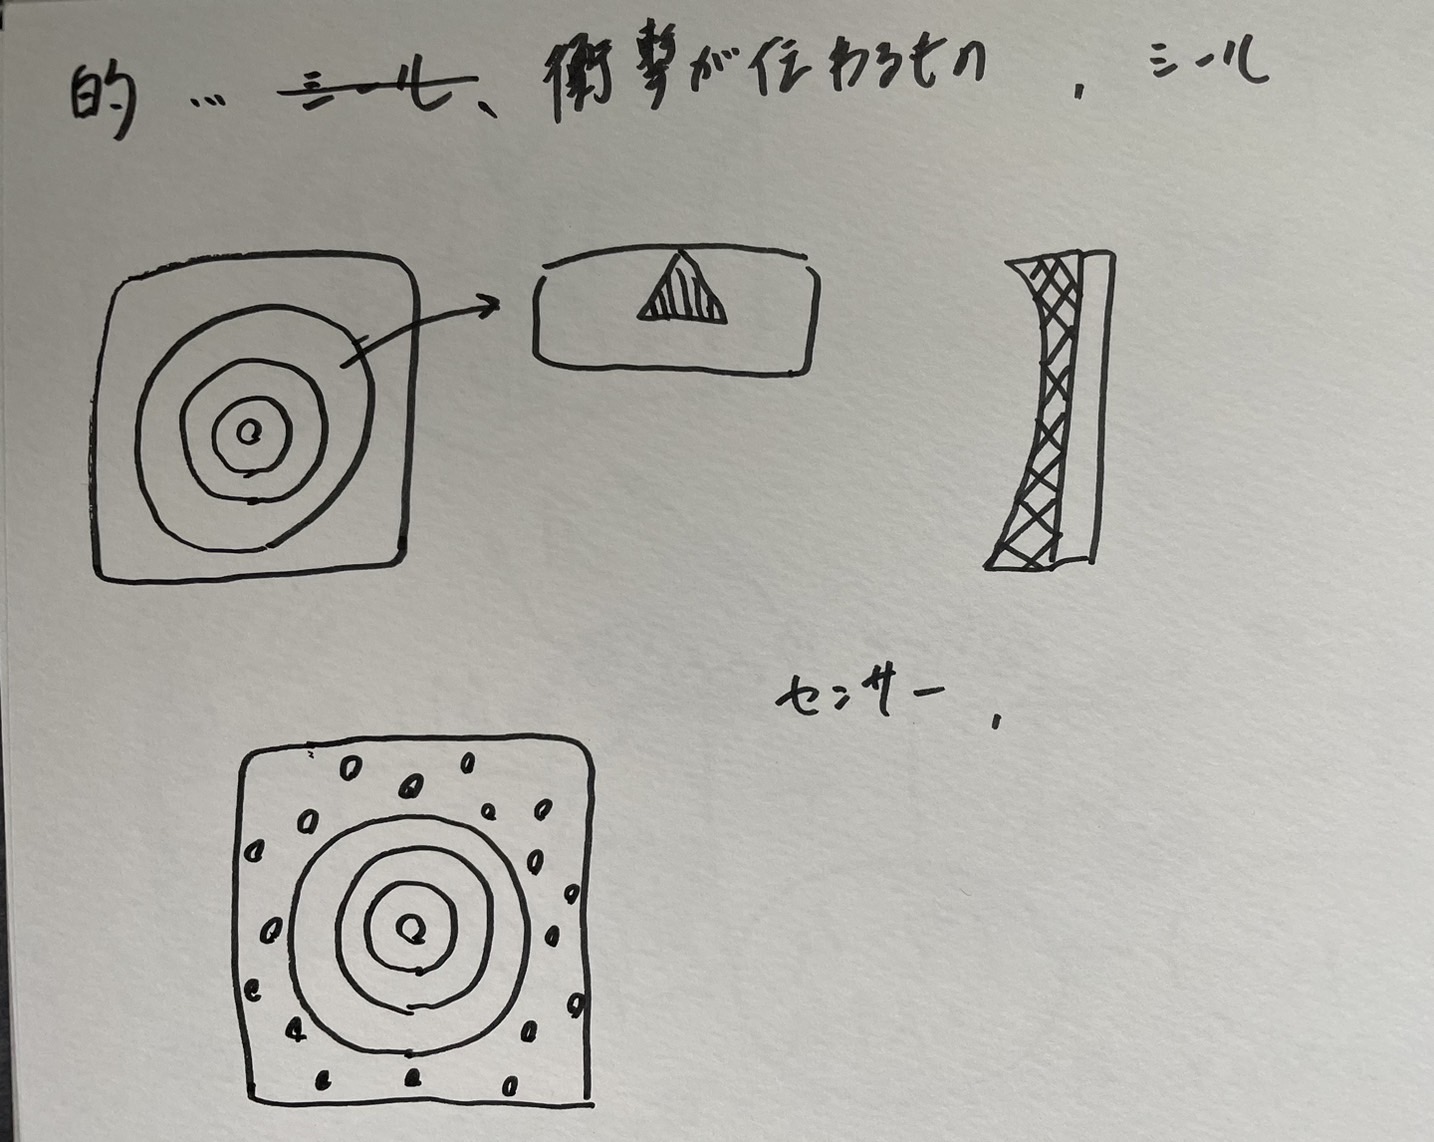 的 … シール、衝撃が伝わるもの , シール
センサー ,